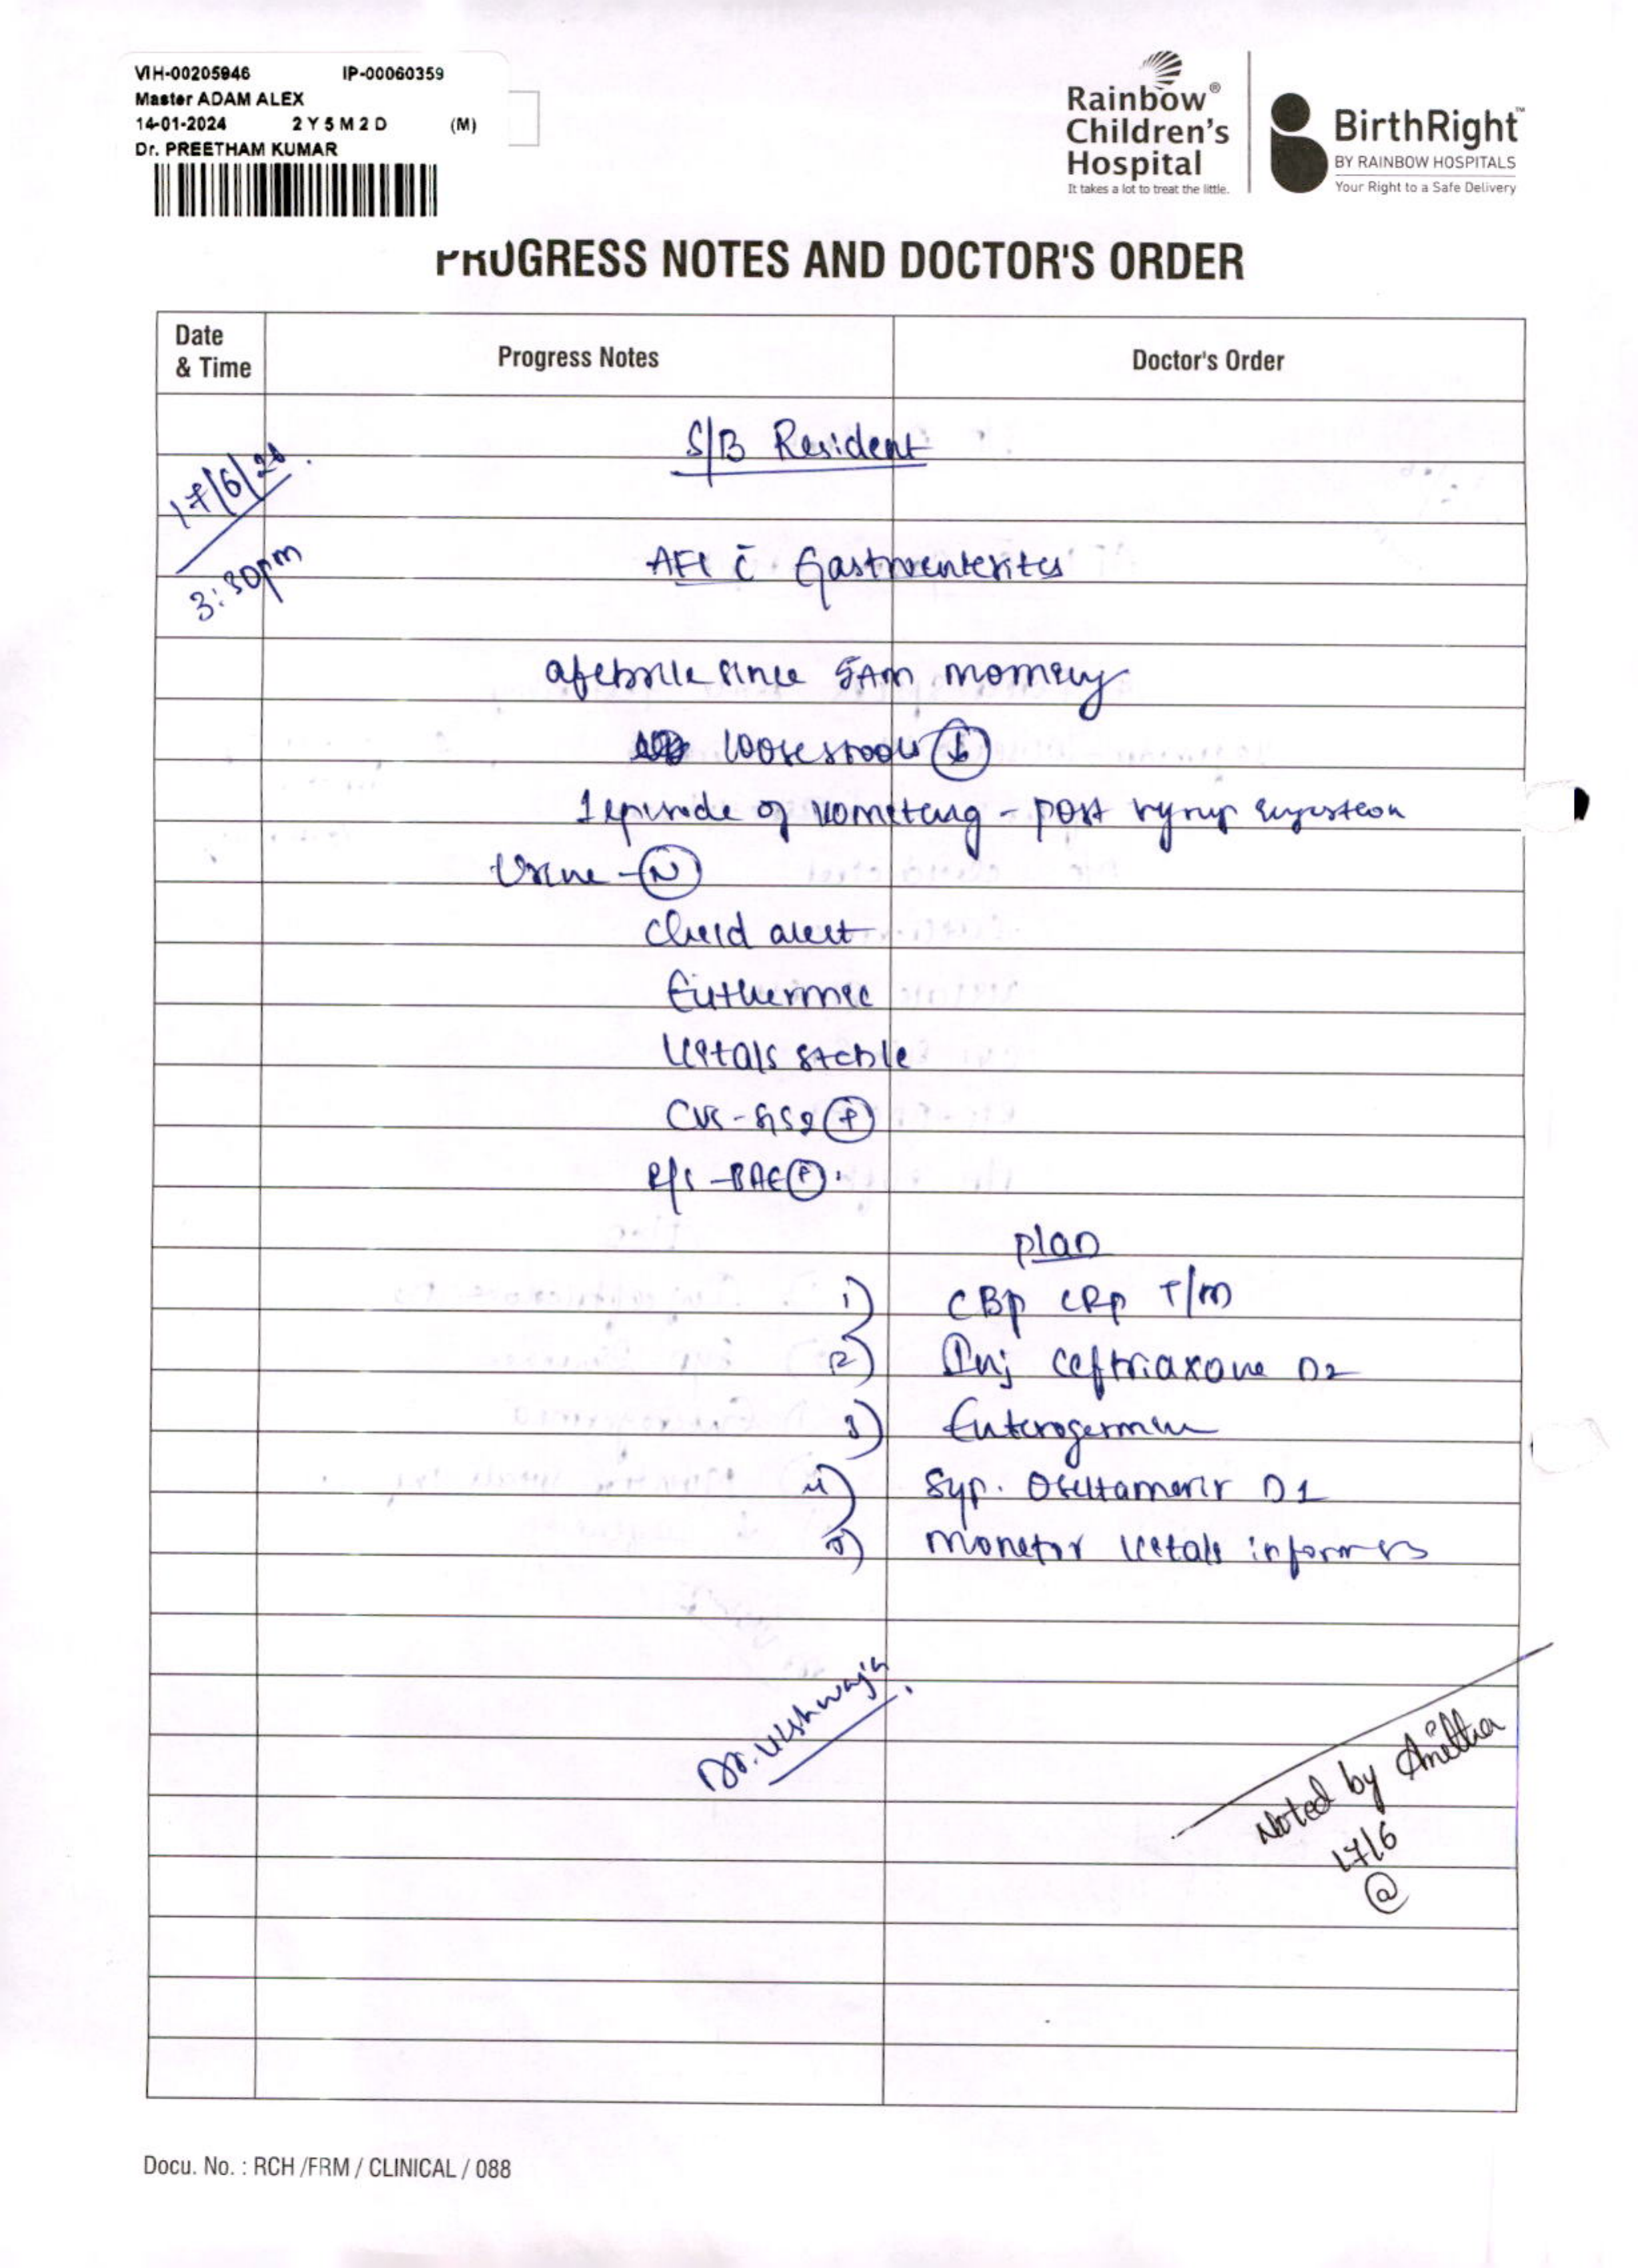 VIH-00205946 IP-00060359
Master ADAM ALEX
14-01-2024 2 Y 5 M 2 D (M)
Dr. PREETHAM KUMAR
Rainbow®
Children's
Hospital
It takes a lot to treat the little.
BirthRight™
BY RAINBOW HOSPITALS
Your Right to a Safe Delivery
PROGRESS NOTES AND DOCTOR'S ORDER
Date
& Time
Progress Notes
Doctor's Order
S/B Resident
17/6/26
3:30pm
AFI c̄ Gastroenteritis
afebrile since 5AM morning
loose stools
1 episode of vomiting - post syrup ingestion
Urine - N
Child alert
Euthermic
Vitals stable
CVS - S1S2 +
R/S - BAE P
plan
1) CBP CRP T/M
2) Inj Ceftriaxone D2
3) Enterogermina
4) Syp. Oseltamavir D1
5) Monitor vitals inform
Dr. Vishwaja
Noted by Anitha
17/6
@
Docu. No. : RCH /FRM / CLINICAL / 088